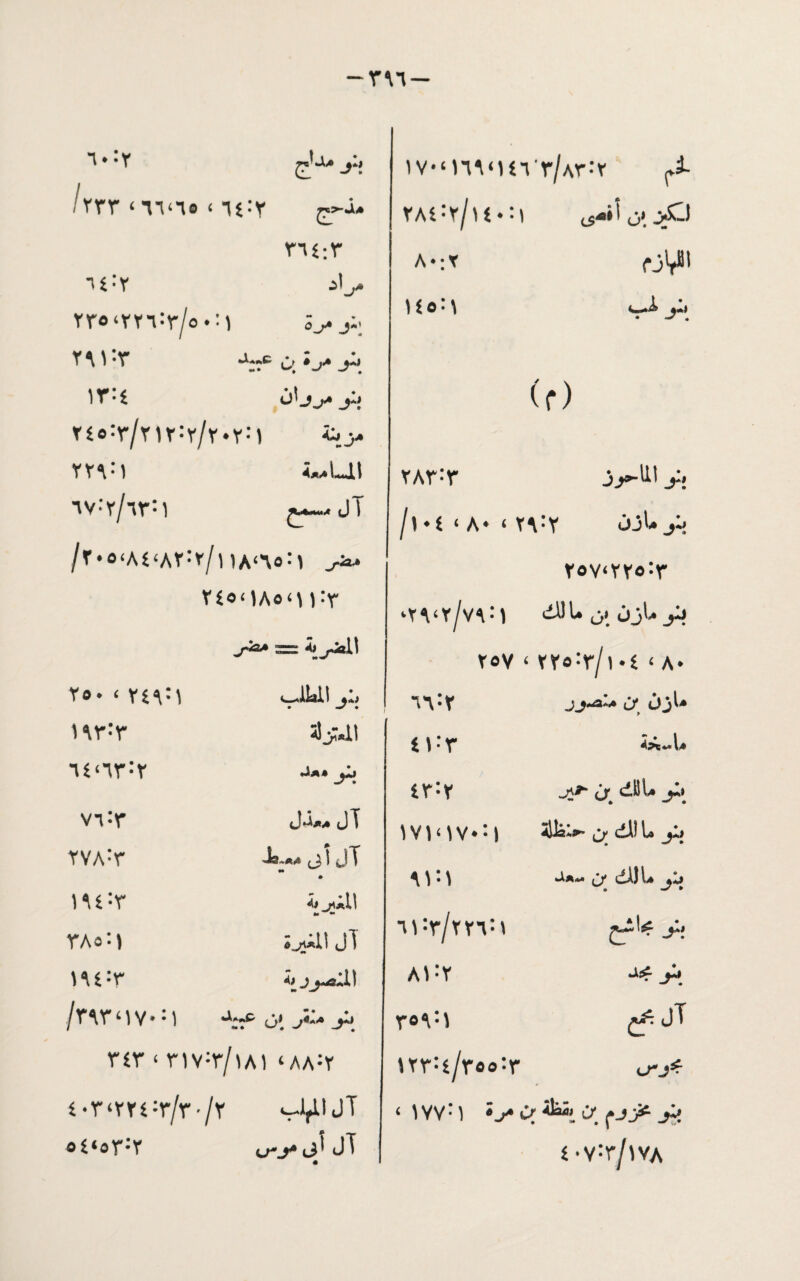 —٣٩٦—
لخم ٢:٨٣/٣ ١٤٦،١٦٩،١٧٠
لكيز بن أفصى ١:١٤٠/٢:٢٨٤
اللهازم ٢:٨٠
بنو لهب ١:١٤٥
(م)
بنو الماحوز ٣:٢٨٣
بنو مازن ٢:٢٩ ، ٨٠ ، ١٠٤/
٣:٢٢٥،٢٥٧
بنو مازن بن مالك ١:٧٩/٢،٢٩،
٨٠ ، ١٠٤/٣:٢٢٥ ، ٢٥٧
مازن بن منصور ٢:٦٦
ماسخة ٣:٤١
بنو مالك بن حمير ٢:٤٣
بنو مالك بن حنظلة ١:١٧٠،١٧١
بنو مالك بن سعد ١:٩١
بنو مجاشع ١:٢٢٦/٣:٦١
بنو مجد ٢:٨١
آل مجمع ١:٢٥٩
مجوس ٣:٢٥٥/٤:١٢٣
بنو مخزوم بن يقظة بن مرة ١:١٧٧ ،
١٧٨/٣:٤٠٧
بنو مدلج ٢:٦٠
مذحج ٢:٦٤ ، ٦٥،٦٦ ، ٢٣٣/
٣:٣٦٤
مراد ٢:٦٤
بنو مرة ١:٥٠/٣:٢٢٦،٢٣٥
بنو مرة بن عبيد ٣:٢٩١
بنو مروان ٤:١٣
مزينة ١:٢٠٢/٢:٢١٢/٣:٢٤٥
المسامعة ١:٢٢٩
آل مسمع ١:٦٣/٢:٦٧
مضر ١:٩٥،١١٨/٢:٨٣،٨٤،٢٠٥/
٣:١١،١٨٥،٢٤٥
المضرية = مضر
بنو المطلب ١:٢٤٩ ، ٢٥٠
المعتزلة ٣:١٩٣
بنو معد ٢:٦٣،٦٤
آل معذل ٣:٧٦
آل أبى معيط ٢:٢٧٨
المغيرية ٢:١٩٤
آل المغيرة ١:٢٨٥
المنصورية ٢:١٩٤
بنو منقر بن عبيد ١:١٧٠،٢٩٣/
٢:٨٨، ١٨١/٣:٢١٧ ، ٢٤٣
آل المهلب ٢/٢٠/٣:٢٢٤،٤٠٣
آل أبى موسى ٢:٥٣،٥٤